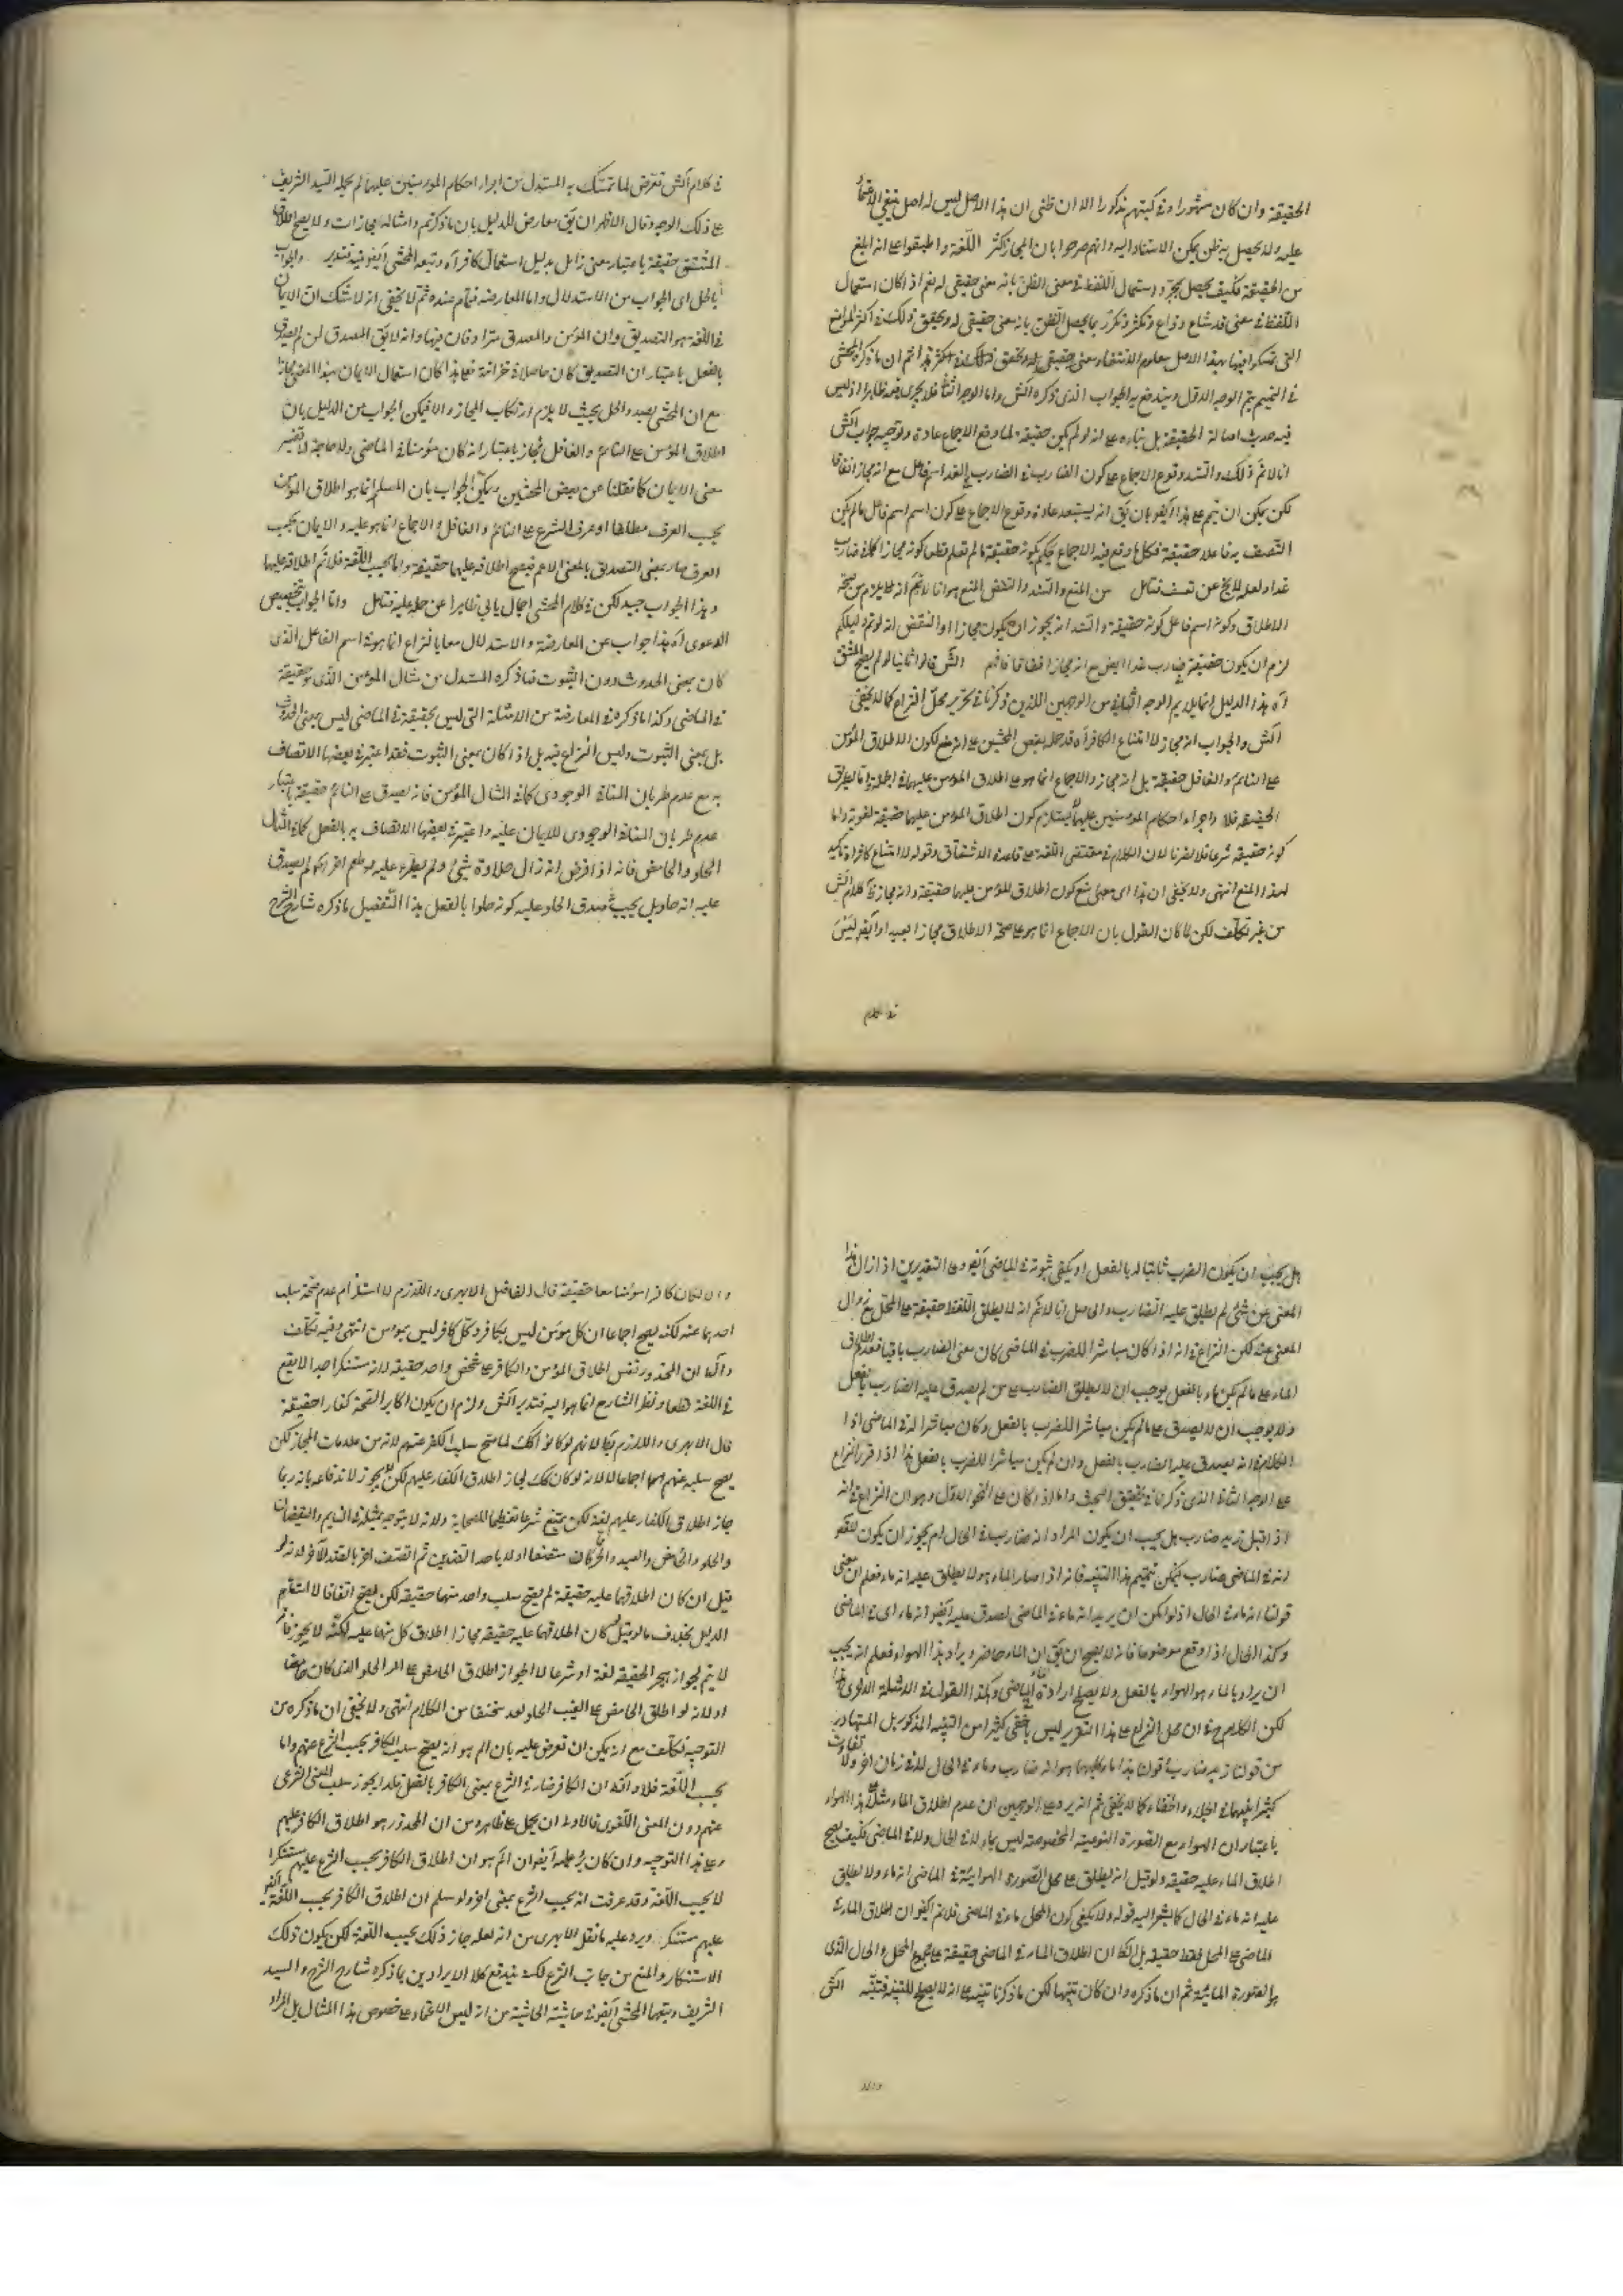 الحقيقة وان كان مشهورا وفى كتبهم مذكورا الا ان ظنى ان هذا الاصل ليس له اصل ينبغى الاعتماد
عليه ولا يحصل به ظن يمكن الاستناد اليه وانهم صرحوا بان المجاز اكثر اللغة واطبقوا على انه ابلغ
من الحقيقة فكيف يحصل بمجرد استعمال اللفظ فى معنى الظن بانه معنى حقيقى له نعم اذا كان استعمال
اللفظ فى معنى قد شاع وذاع وتكثر وتكرر بما يحصل الظن بانه معنى حقيقى له وتحقق ذلك فى اكثر المواضع
التى تمسكوا فيها بهذا الاصل معلوم الانتفاء ثم ان ما ذكره المحشى
فى التتميم يتم الوجه الاول ويندفع به الجواب الذى ذكره الش واما الوجه الثانى فلا يجرى فيه ظاهرا اذ ليس
فيه حديث اصالة الحقيقة بل بناءه على انه لو لم يكن حقيقة لما وقع الاجماع عادة وتوجيه جواب الش
انا لا نم ذلك والسند وقوع الاجماع على كون الضارب فى الضارب فى الغد اسم فاعل مع انه مجاز اتفاقا
لكن يمكن ان يتم على هذا ايضو بان يق انه يستبعد عادة وقوع الاجماع على كون اسم اسم فاعل ما لم يكن
المتصف به فاعلا حقيقة فكل ما وقع فيه الاجماع يحكم بكونه حقيقة ما لم تعلم قطعا كونه مجازا كما فى ضارب
غدا ولعله لا يخ عن تعسف فتأمل من المنع والسند والنقض المنع هو انا لا نم انه يلزم من صحة
الاطلاق وكونه اسم فاعل كونه حقيقة والسند انه يجوز ان يكون مجازا والنقض انه لو تم دليلكم
لزم ان يكون حقيقة فى ضارب غدا ايض مع انه مجاز اتفاقا فافهم الش قالوا ثانيا لو لم يصح المشتق
آه هذا الدليل انما يلايم الوجه الثانى من الوجهين اللذين ذكرنا فى تحرير محل النزاع كما لا يخفى
الش والجواب انه مجاز لامتناع الكافر آه قد حمله بعض المحشين على انه منع لكون الاطلاق المؤمن
على النائم والغافل حقيقة بل انه مجاز والاجماع انما هو على اطلاق المؤمن عليهما فى الجملة واما بطريق
الحقيقة فلا واجراء احكام المؤمنين عليهما لا يستلزم كون اطلاق المؤمن عليهما حقيقة لغوية واما
كونه حقيقة شرعا فلا يضرنا لان الكلام فى مقتضى اللغة على قاعدة الاشتقاق وقوله لامتناع كافر آه تأكيد
لهذا المنع انتهى ولا يخفى ان هذا اى منع كون اطلاق المؤمن عليهما حقيقة وانه مجاز فى كلام الش
من غير تكلف لكن لما كان القول بان الاجماع انما هو على صحة الاطلاق مجازا بعيدا وايضو ليس
فى كلام
فى كلام الش تعرض لما تمسك به المستدل من اجراء احكام المؤمنين عليهما لم يحمله السيد الشريف
على ذلك الوجه وقال الاظهر ان يق معارض للدليل بان ما ذكرتم وامثاله مجازات ولا يصح اطلاق
المشتق حقيقة باعتبار معنى زائل بدليل استعمال كافر آه وتبعه المحشى ايضو فيه فتدبر والجواب
بالحل اى الجواب من الاستدلال واما المعارضة فتام عنده ثم لا يخفى انه لا شك ان الايمان
فى اللغة هو التصديق وان المؤمن والمصدق مترادفان فيها وانه لا يق المصدق لمن لم يصدق
بالفعل باعتبار ان التصديق كان حاصلا فى خزانته فعلى هذا كان استعمال الايمان بهذا المعنى مجازا
مع ان المحشى بصدد الحل بحيث لا يلزم ارتكاب المجاز والا فيكن الجواب من الدليل بان
اطلاق المؤمن على النائم والغافل مجاز باعتبار انه كان مؤمنا فى الماضى ولا حاجة الى تفسير
معنى الايمان كما نقلنا عن بعض المحشين ويمكن الجواب بان المسلم انما هو اطلاق المؤمن
بحسب العرف مطلقا او عرف الشرع على النائم والغافل والاجماع انما هو عليه والايمان بحسب
العرف صار بمعنى التصديق بالمعنى الاعم فيصح اطلاقه عليهما حقيقة واما بحسب اللغة فلا نم اطلاقه عليهما
وهذا الجواب جيد لكن فى كلام المحشى اجمال يابى ظاهرا عن حمله عليه فتأمل واما الجواب بتخصيص
الدعوى آه هذا جواب عن المعارضة والاستدلال معا بان النزاع انما هو فى اسم الفاعل الذى
كان بمعنى الحدوث دون الثبوت فما ذكره المستدل من مثال المؤمن الذى هو حقيقة
فى الماضى وكذا ما ذكره فى المعارضة من الامثلة التى ليس بحقيقة فى الماضى ليس بمعنى الحدوث
بل بمعنى الثبوت وليس النزاع فيه بل اذا كان بمعنى الثبوت فقد اعتبر فى بعضها الاتصاف
به مع عدم طريان المنافى الوجودى كما فى المثال المؤمن فانه يصدق على النائم حقيقة باعتبار
عدم طريان المنافى الوجودى للايمان عليه واعتبر فى بعضها الاتصاف به بالفعل كما فى المثال
الحلو والحامض فانه اذا فرض انه زال حلاوة شئ ولم يطرء عليه طعم آخر لم يصدق
عليه انه حلو بل يجب فى صدق الحلو عليه كونه حلوا بالفعل هذا التفصيل ما ذكره شارح الشرح
هل يجب ان يكون الضرب ثابتا له بالفعل او يكفى ثبوته فى الماضى ايضو وعلى التقديرين اذا زال هذا
المعنى عن شئ لم يطلق عليه الضارب والحاصل انا لا نم انه لا يطلق اللفظ حقيقة على المحل مع زوال
المعنى عنه لكن النزاع فى انه اذا كان مباشرا للضرب فى الماضى كان معنى الضارب باقيا فعدم اطلاق
الماء على ما لم يكن ماء بالفعل يوجب ان لا يطلق الضارب على من لم يصدق عليه الضارب بالفعل
ولا يوجب ان لا يصدق على ما لم يكن مباشرا للضرب بالفعل وكان مباشرا له فى الماضى اذا
الكلام فى انه يصدق عليه الضارب بالفعل وان لم يكن مباشرا للضرب بالفعل هذا اذا قرر النزاع
على الوجه الثانى الذى ذكرنا فى تحقيق البحث واما اذا كان على النحو الاول وهو ان النزاع فى انه
اذا قيل زيد ضارب هل يجب ان يكون المراد انه ضارب فى الحال ام يجوز ان يكون المقصود
انه فى الماضى ضارب فيمكن تتميم هذا التنبيه فانه اذا صار الماء هواء لا يطلق عليه انه ماء فعلم ان معنى
قولنا انه ماء فى الحال اذ لو امكن ان يريد انه ماء فى الماضى لصدق عليه ايضو انه ماء اى فى الماضى
وكذا الحال اذا وقع موضوعا فانه لا يصح ان يق ان الماء حاضر ويراد هذا الهواء فعلم انه يجب
ان يراد بالماء هو الهواء بالفعل ولا يصح ارادة الماضى وهكذا القول فى الامثلة الاخرى هذا
لكن الكلام فى ان محل النزاع على هذا التقرير ليس باخفى كثيرا من التنبيه المذكور بل المتبادر
من قولنا زيد ضارب وقولنا هذا ماء كليهما هو انه ضارب وماء فى الحال لا فى زمان آخر ولا تفاوت
كثيرا بينهما فى الجلاء والخفاء كما لا يخفى ثم انه يرد على الوجهين ان عدم اطلاق الماء مثلا على هذا الهواء
باعتبار ان الهواء مع الصورة النوعية المخصوصة ليس بماء لا فى الحال ولا فى الماضى فكيف يصح
اطلاق الماء عليه حقيقة ولو قيل انه يطلق على محل الصورة الهوائية فى الماضى انه ماء ولا يطلق
عليه انه ماء فى الحال كما يشير اليه قوله ولا يكفى كون المحل ماء فى الماضى فلا نم ايضو ان اطلاق الماء فى
الماضى على المحل فقط حقيقة بل الظ ان اطلاق الماء فى الماضى حقيقة على مجموع المحل والحال الذى
هو الصورة المائية ثم ان ما ذكره وان كان تنبيها لكن ما ذكرنا تنبيه على انه لا يصلح للتنبيه فتنبه الش
والا
والا لكان كافرا مؤمنا معا حقيقة قال الفاضل الابهرى واللازم لاستلزام عدم صحة سلب
احدهما عنه لكنه يصح اجماعا ان كل مؤمن ليس بكافر وكل كافر ليس بمومن انتهى وفيه تكلف
والظ ان المحذور نفس اطلاق المؤمن والكافر على شخص واحد حقيقة لانه مستنكر جدا لا يقع
فى اللغة قطعا ونظر الشارح انما هو اليه فتدبر الش ولزم ان يكون اكابر الصحابة كفارا حقيقة
قال الابهرى واللازم بط لانهم لو كانوا كك لما صح سلب الكفر عنهم لانه من علامات المجاز لكن
يصح سلبه عنهم اجماعا لا لانه لو كان كك لجاز اطلاق الكفار عليهم لكن لا يجوز لاندفاعه بانه ربما
جاز اطلاق الكفار عليهم لغة لكن يمتنع شرعا تعظيما للصحابة ولانه لا يتوجه بمثله فى النائم واليقضان
والحلو والحامض والعبد والحر كان متصفا اولا باحد الضدين ثم اتصف آخرا بالضد الآخر لانه لو
قيل ان كان اطلاقهما عليه حقيقة لم يصح سلب واحد منهما حقيقة لكن يصح اتفاقا لاستقام
الدليل بخلاف ما لو قيل كان اطلاقهما عليه حقيقة مجازا اطلاق كل منهما عليه لكنه لا يجوز فانه
لا يتم لجواز هجر الحقيقة لغة او شرعا لا لجواز اطلاق الحامض على الحلو الذى كان حامضا
او لانه لو اطلق الحامض على العنب الحلو لعد سخفا من الكلام انتهى ولا يخفى ان ما ذكره من
التوجيه تكلف مع انه يمكن ان تعرض عليه بان الم هو انه يصح سلب الكافر بحسب الشرع عنهم واما
بحسب اللغة فلا وذلك ان الكافر صار فى الشرع بمعنى الكافر بالفعل فلذا يجوز سلب المعنى الشرعى
عنهم دون المعنى اللغوى فالاولى ان يحمل على ظاهره من ان المحذور هو اطلاق الكافر عليهم
وعلى هذا التوجيه وان كان يرد عليه ايضو ان الم هو ان اطلاق الكافر بحسب الشرع عليهم مستنكر
لا بحسب اللغة وقد عرفت انه بحسب الشرع بمعنى آخر ولو سلم ان اطلاق الكافر بحسب اللغة ايضو
عليهم مستنكر ويرد عليه ما نقل الابهرى من انه لعله جاز ذلك بحسب اللغة لكن يكون ذلك
الاستنكار والمنع من جانب الشرع لكنه يندفع كلا الايرادين بما ذكره شارح الشرح والسيد
الشريف وتبعهما المحشى ايضو فى حاشية الحاشية من انه ليس الاعتماد على خصوص هذا المثال بل المراد